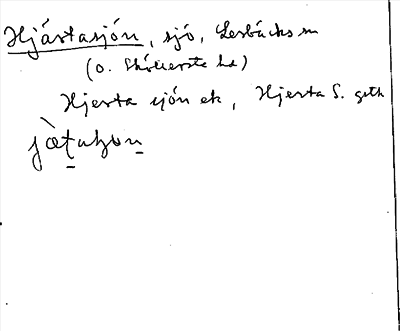 Hjärtasjön, sjö, Lerbäcks sn
(o. Sköllersta hd)
Hjerta sjön ek, Hjerta S. gstk
jætuhɷn